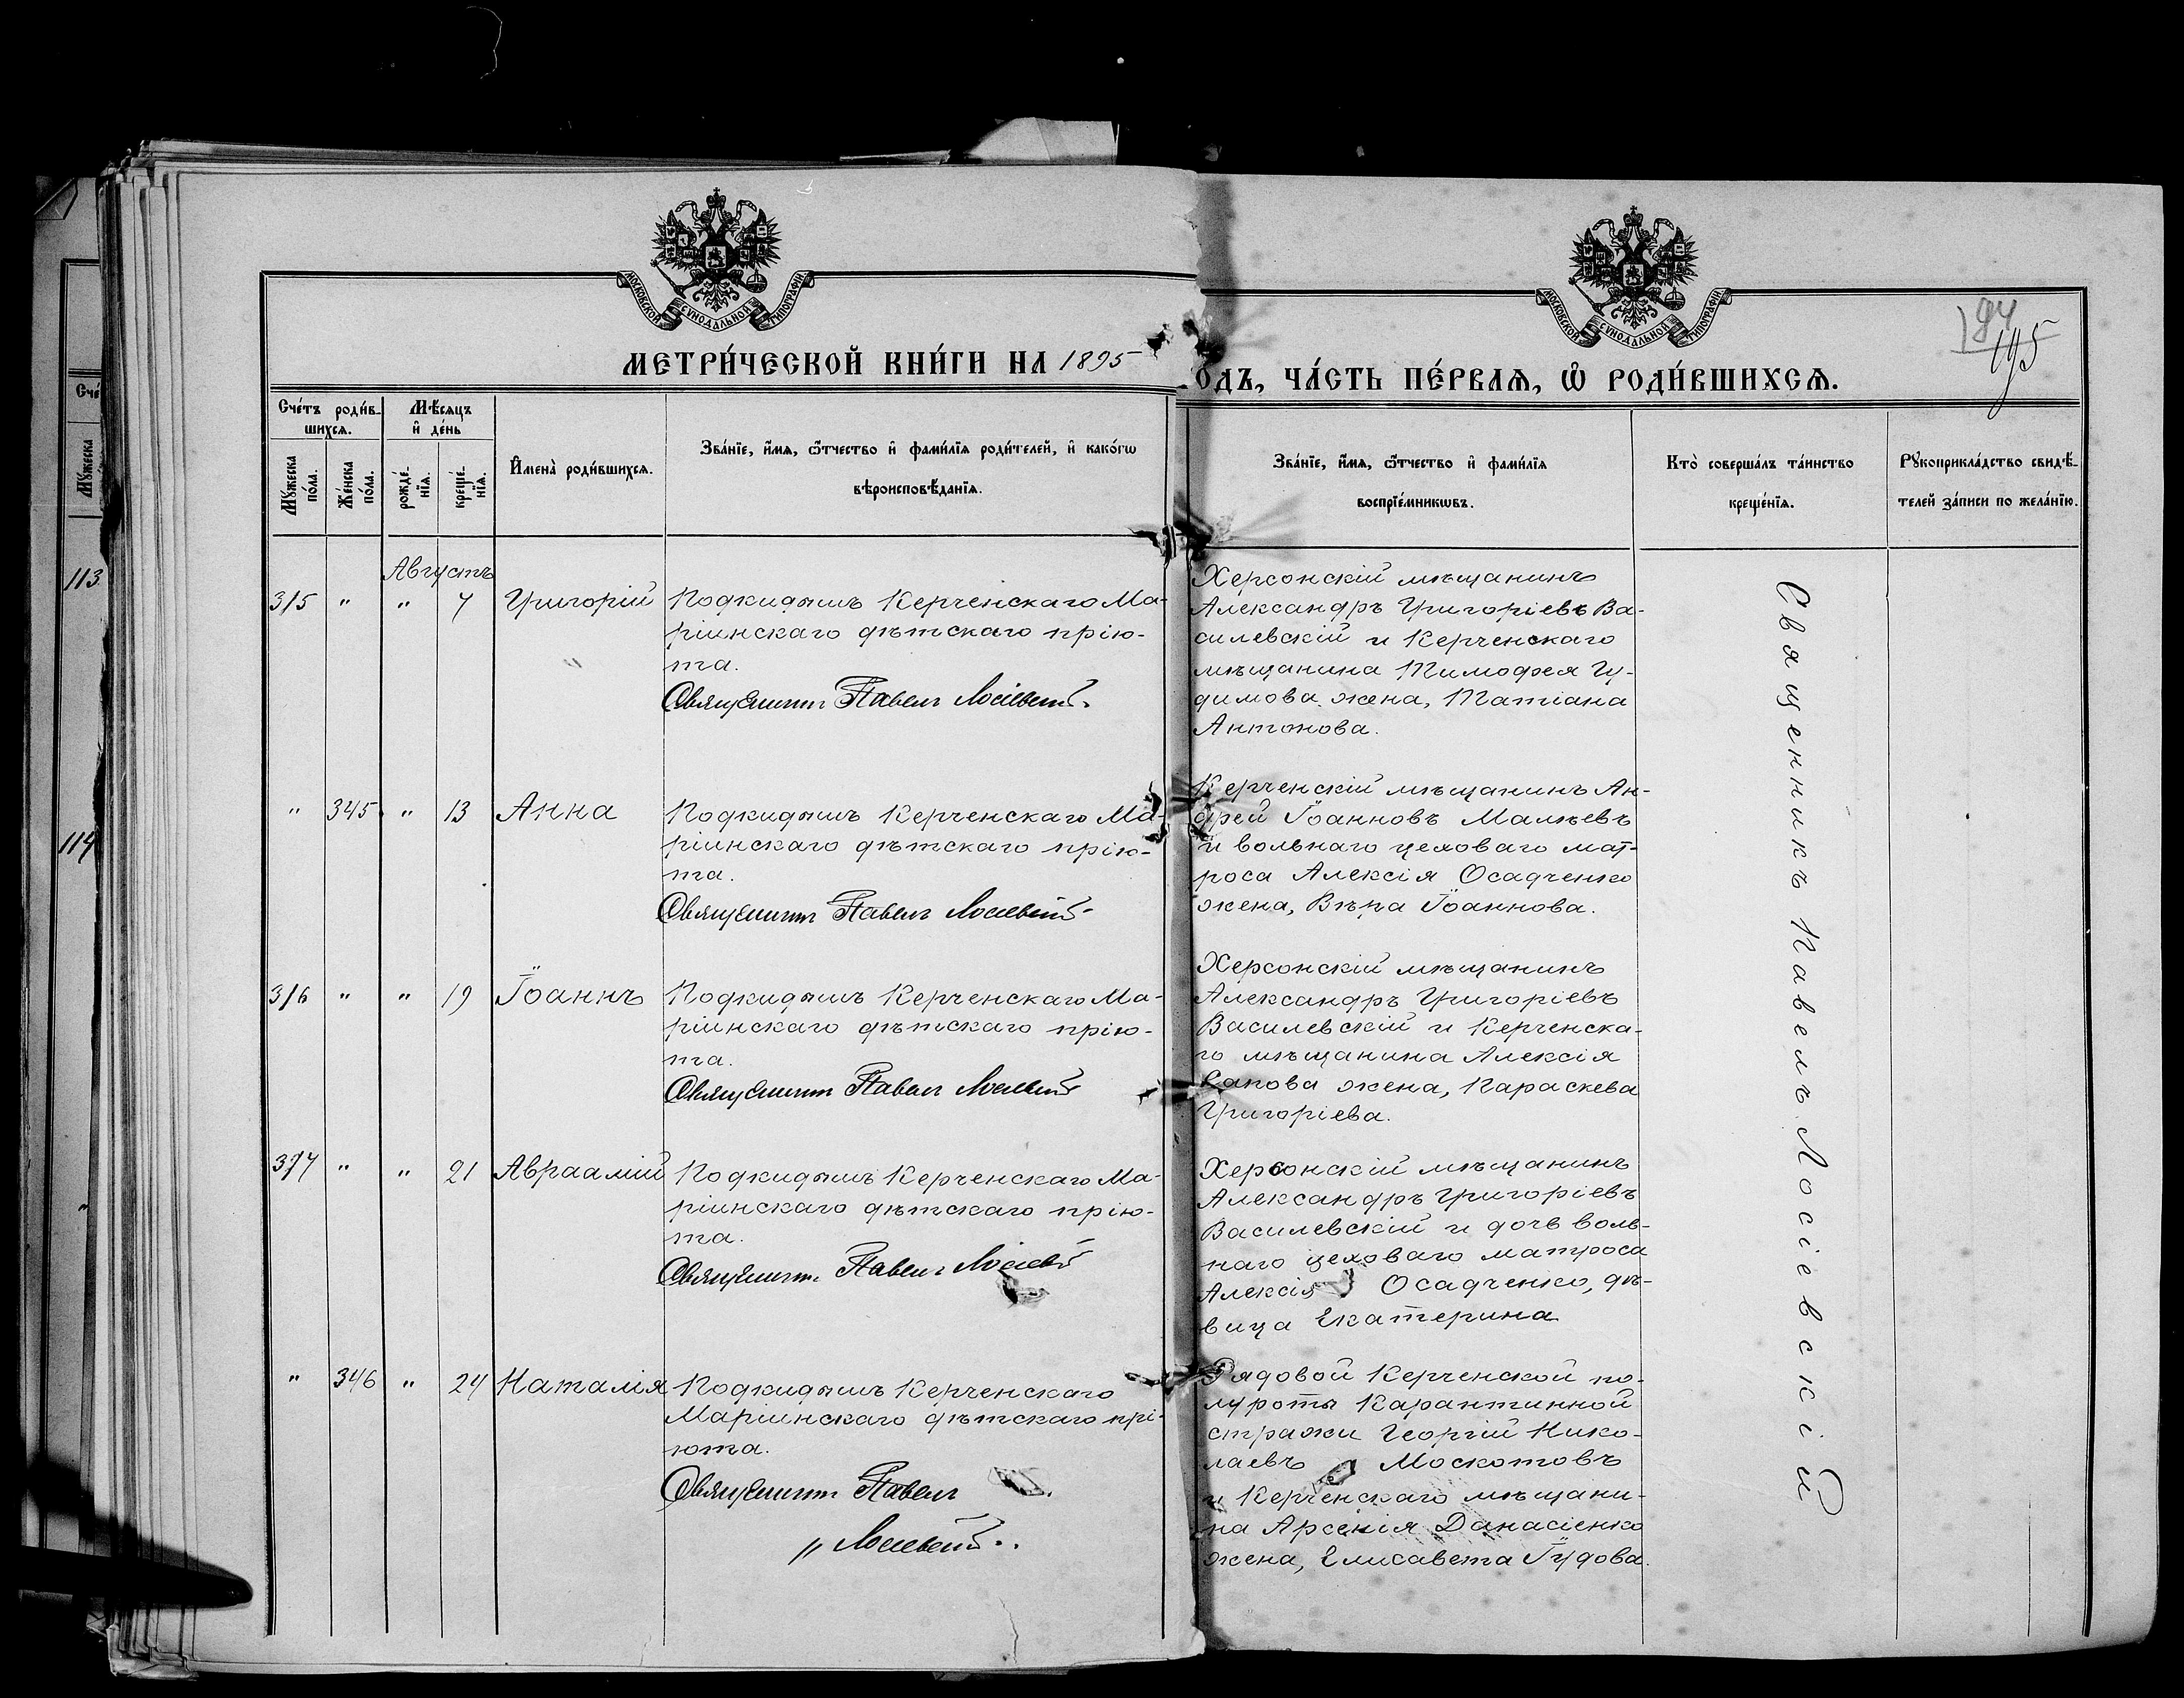 МОСКОВСКОЙ СѴНОДАЛЬНОЙ ТИПОГРАФІИ
МОСКОВСКОЙ СѴНОДАЛЬНОЙ ТИПОГРАФІИ
МЕТРИ́ЧЕСКОЙ КНИ́ГИ НА 1895
ОДЪ, ЧА́СТЬ ПЕ́РВАѦ, Ѡ҆ РОДИ́ВШИХСѦ.
194
195
Сче́тъ роди́в-
шихсѧ.
Мѣ́сѧцъ
и҆ де́нь
Мꙋ́жеска
по́ла.
Же́нска
по́ла.
рожде́-
нїѧ.
креще́-
нїѧ.
И҆мена̀ роди́вшихсѧ.
Зва́нїе, и҆́мѧ, ѻ҆́тчество и҆ фами́лїѧ роди́телей, и҆ како́гѡ
вѣроисповѣ́данїѧ.
Зва́нїе, и҆́мѧ, ѻ҆́тчество и҆ фами́лїѧ
воспрїе́мникѡвъ.
Кто̀ соверша́лъ та́инство
креще́нїѧ.
Рꙋкоприкла́дство свидѣ́-
телей за́писи по жела́нїю.
Сче́
Мꙋ́жеска
113
114
Августъ
315 " " 7 Григорій
Подкидышъ Керченскаго Ма-
ріинскаго дѣтскаго прію-
та.
Священникъ Павелъ Лосіевскій.
Херсонскій мѣщанинъ
Александръ Григоріевъ Ва-
силевскій и Керченскаго
мѣщанина Тимофея Гу-
димова жена, Татіана
Антонова.
" 345 " 13 Анна
Подкидышъ Керченскаго Ма-
ріинскаго дѣтскаго прію-
та.
Священникъ Павелъ Лосіевскій
Керченскій мѣщанинъ Ан-
дрей Іоанновъ Малѣевъ
и вольнаго цеховаго мат-
роса Алексія Осадченко
жена, Вѣра Іоаннова.
316 " " 19 Іоаннъ
Подкидышъ Керченскаго Ма-
ріинскаго дѣтскаго прію-
та.
Священникъ Павелъ Лосіевскій
Херсонскій мѣщанинъ
Александръ Григоріевъ
Василевскій и Керченска-
го мѣщанина Алексія
жена, Параскева
Григоріева.
317 " " 21 Авраамій
Подкидышъ Керченскаго Ма-
ріинскаго дѣтскаго прію-
та.
Священникъ Павелъ Лосіевскій
Херсонскій мѣщанинъ
Александръ Григоріевъ
Василевскій и дочь воль-
наго цеховаго матроса
Алексія Осадченко, дѣ-
вица Екатерина
" 346 " 24 Наталія
Подкидышъ Керченскаго
Маріинскаго дѣтскаго прі-
юта.
Священникъ Павелъ
" Лосіевскій.
Рядовой Керченской по-
луроты Карантинной
стражи Георгій Нико-
лаевъ Москотовъ
и Керченскаго мѣщани-
на Арсенія Данасіенко
жена, Елисавета Іудова.
Священникъ Павелъ Лосіевскій